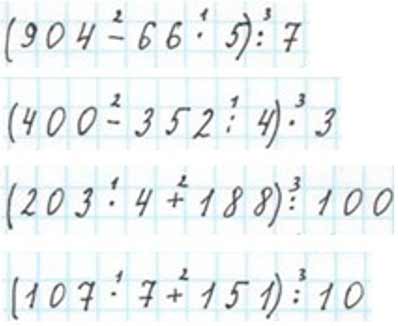 (904 -² 66 ·¹ 5) :³ 7
(400 -² 352 :¹ 4) ·³ 3
(203 ·¹ 4 +² 188) :³ 100
(107 ·¹ 7 +² 151) :³ 10